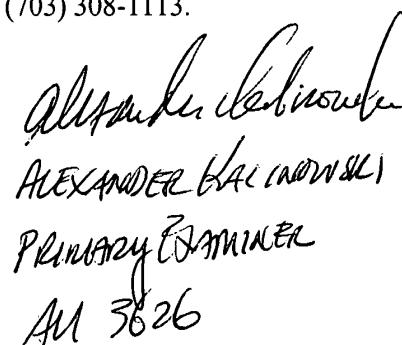 (703) 308-1113.
Alexander Kalinowski
ALEXANDER KALINOWSKI
PRIMARY EXAMINER
AU 3626